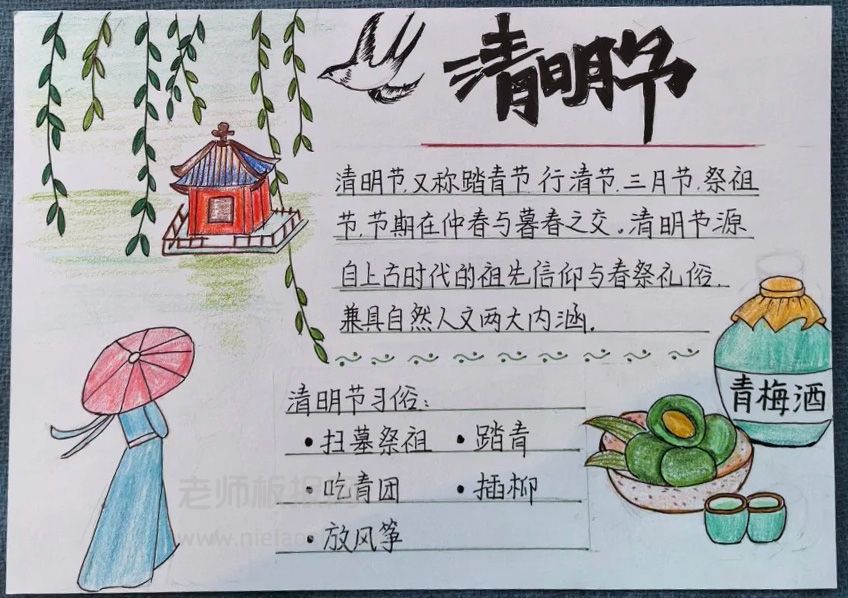 清明节
清明节又称踏青节、行清节、三月节、祭祖
节,节期在仲春与暮春之交。清明节源
自上古时代的祖先信仰与春祭礼俗,
兼具自然人文两大内涵。
青梅酒
清明节习俗:
•扫墓祭祖 •踏青
•吃青团 •插柳
•放风筝
老师板报网